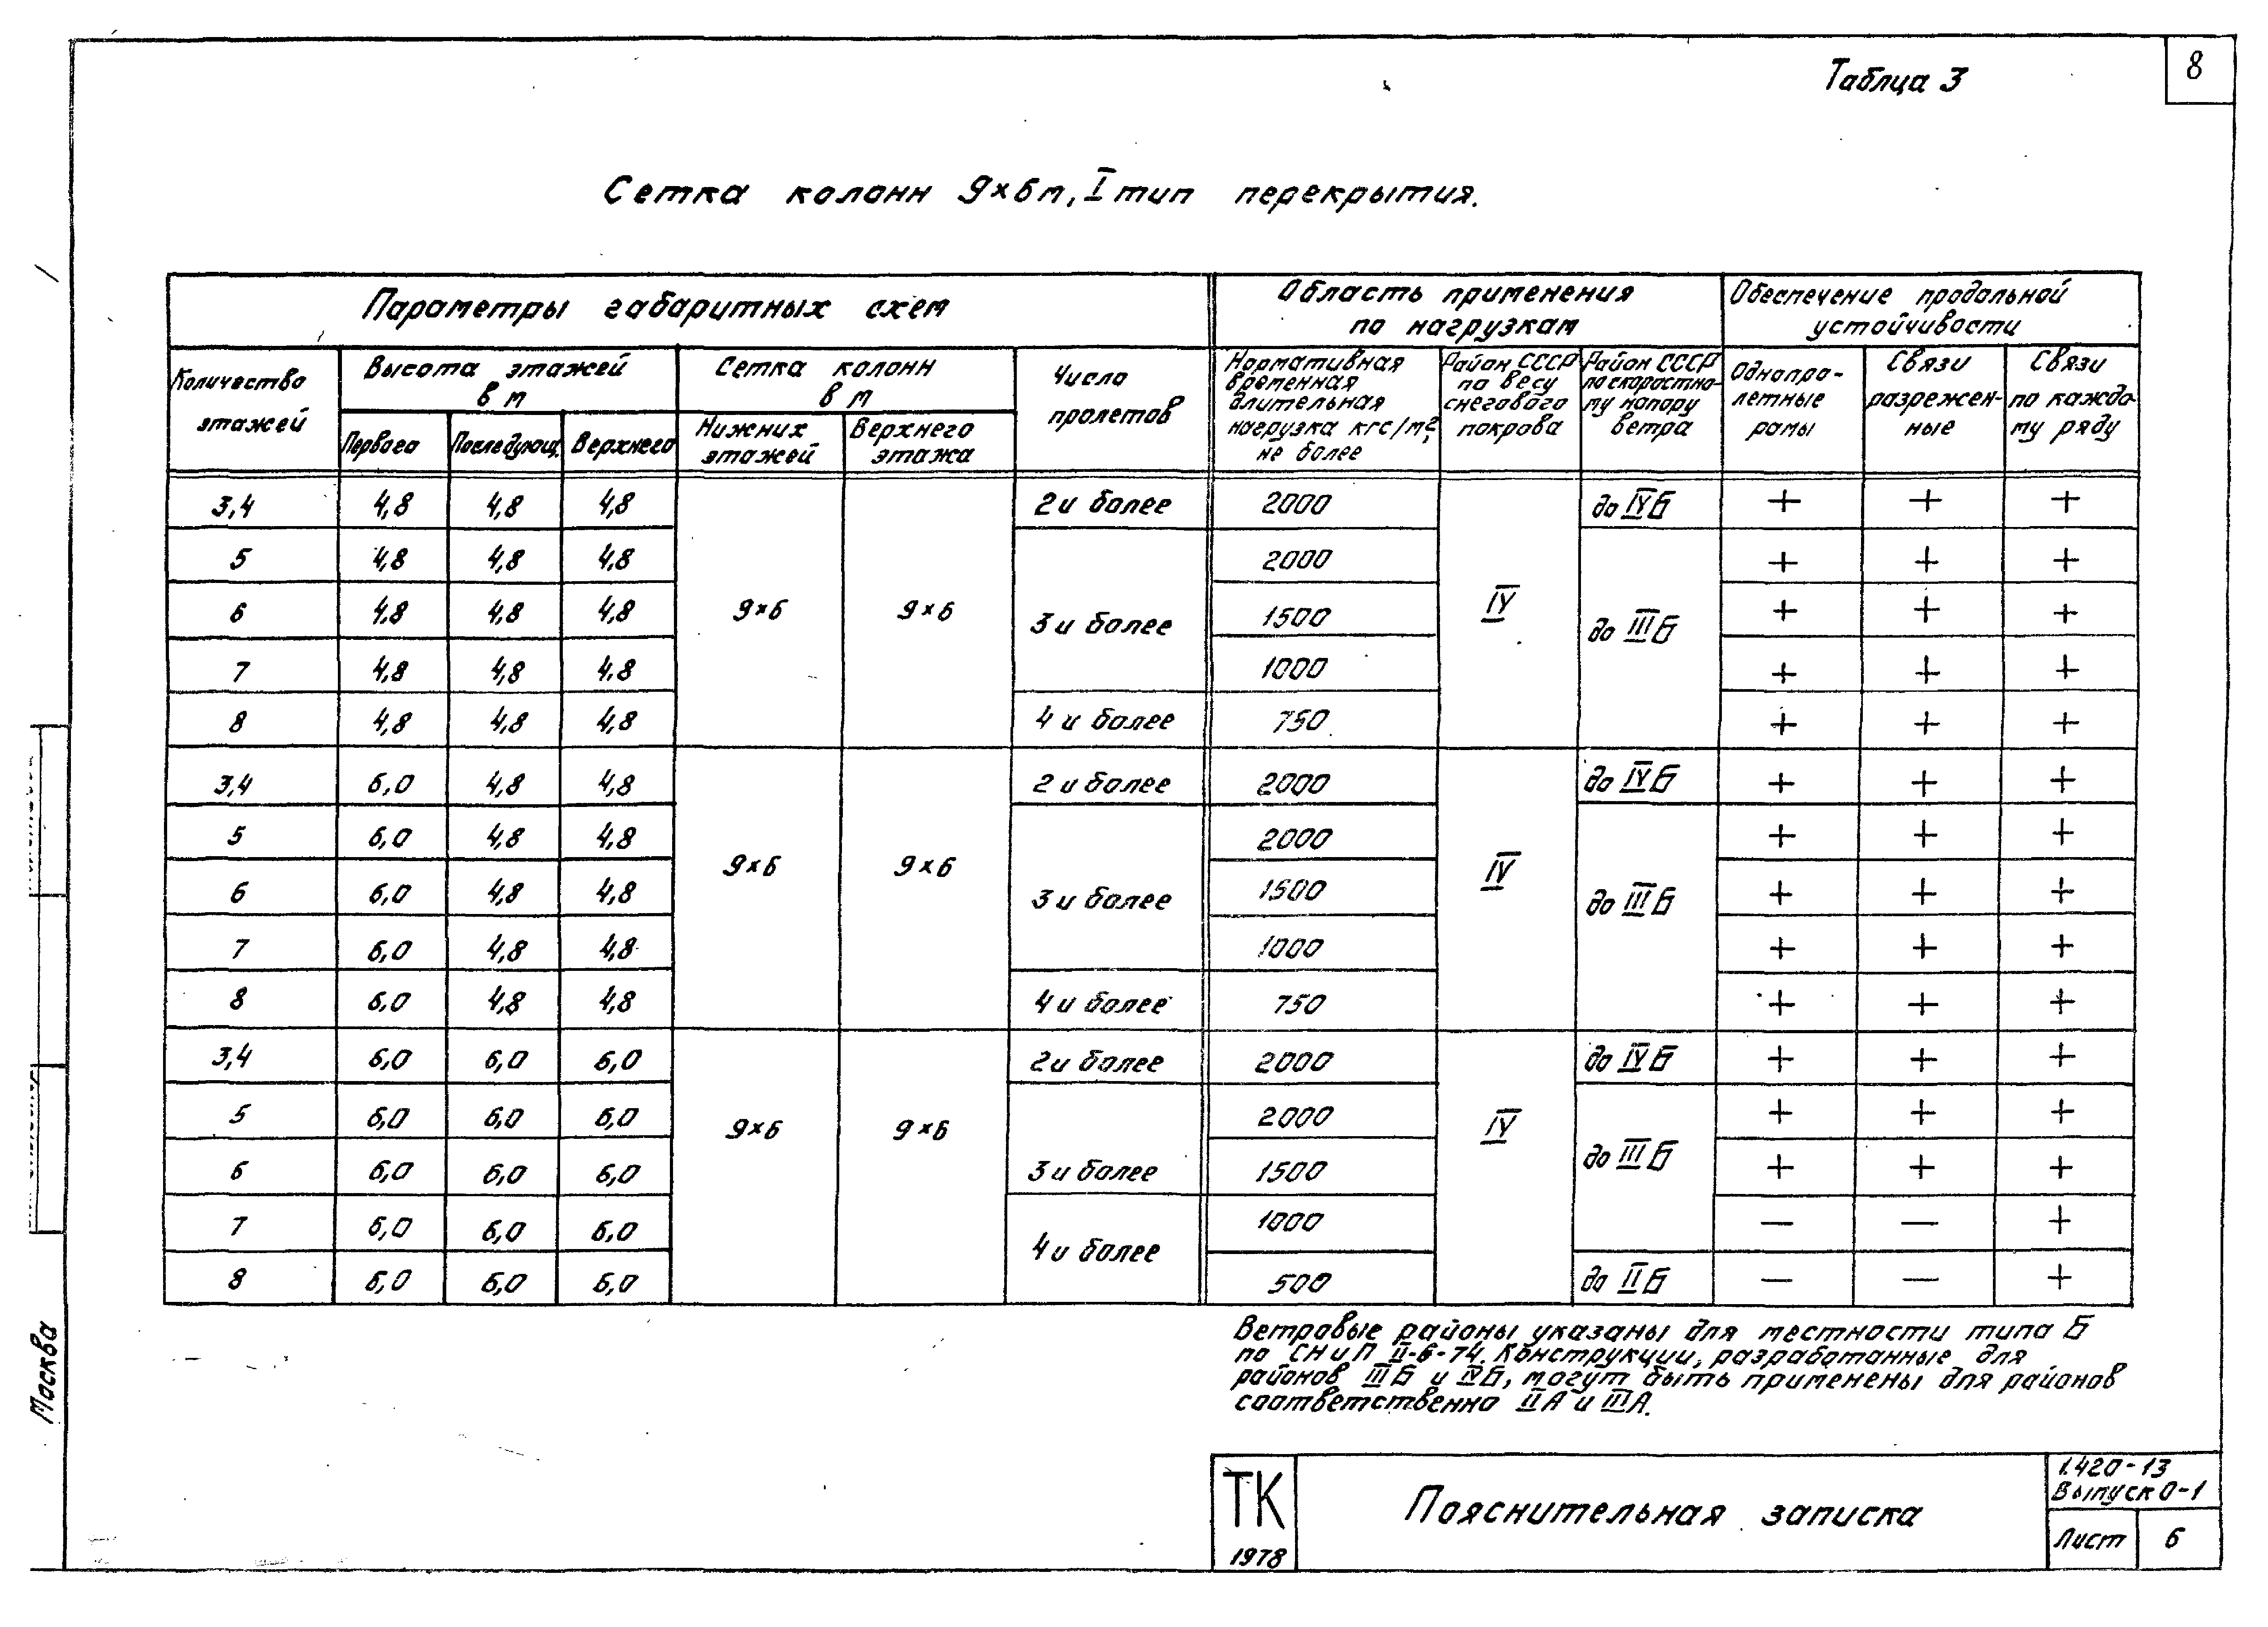 8
Таблца 3
Сетка колонн 9×6м, I тип перекрытия.
Параметры габаритных схем
Область применения
по нагрузкам
Обеспечение продольной
устойчивости
Количество
этажей
Высота этажей
в м
Первого
Последующ.
Верхнего
Сетка колонн
в м
Нижних
этажей
Верхнего
этажа
Число
пролетов
Нормативная
временная
длительная
нагрузка кгс/м²,
не более
Район СССР
по весу
снегового
покрова
Район СССР
по скоростно-
му напору
ветра
Однопро-
летные
рамы
Связи
разрежен-
ные
Связи
по каждо-
му ряду
3,4 4,8 4,8 4,8 2 и более 2000 до IVБ + + +
5 4,8 4,8 4,8 2000 + + +
6 4,8 4,8 4,8 9×6 9×6 3 и более 1500 IV до IIIБ + + +
7 4,8 4,8 4,8 1000 + + +
8 4,8 4,8 4,8 4 и более 750 + + +
3,4 6,0 4,8 4,8 2 и более 2000 до IVБ + + +
5 6,0 4,8 4,8 2000 + + +
6 6,0 4,8 4,8 9×6 9×6 3 и более 1500 IV до IIIБ + + +
7 6,0 4,8 4,8 1000 + + +
8 6,0 4,8 4,8 4 и более 750 + + +
3,4 6,0 6,0 6,0 2 и более 2000 до IVБ + + +
5 6,0 6,0 6,0 9×6 9×6 2000 IV + + +
6 6,0 6,0 6,0 3 и более 1500 до IIIБ + + +
7 6,0 6,0 6,0 4 и более 1000 — — +
8 6,0 6,0 6,0 500 до IIБ — — +
Ветровые районы указаны для местности типа Б
по СНиП II-6-74. Конструкции, разработанные для
районов IIIБ и IVБ, могут быть применены для районов
соответственно IIА и IIIА.
Москва
ТК
1978
Пояснительная записка
1.420-13
Выпуск 0-1
Лист 6